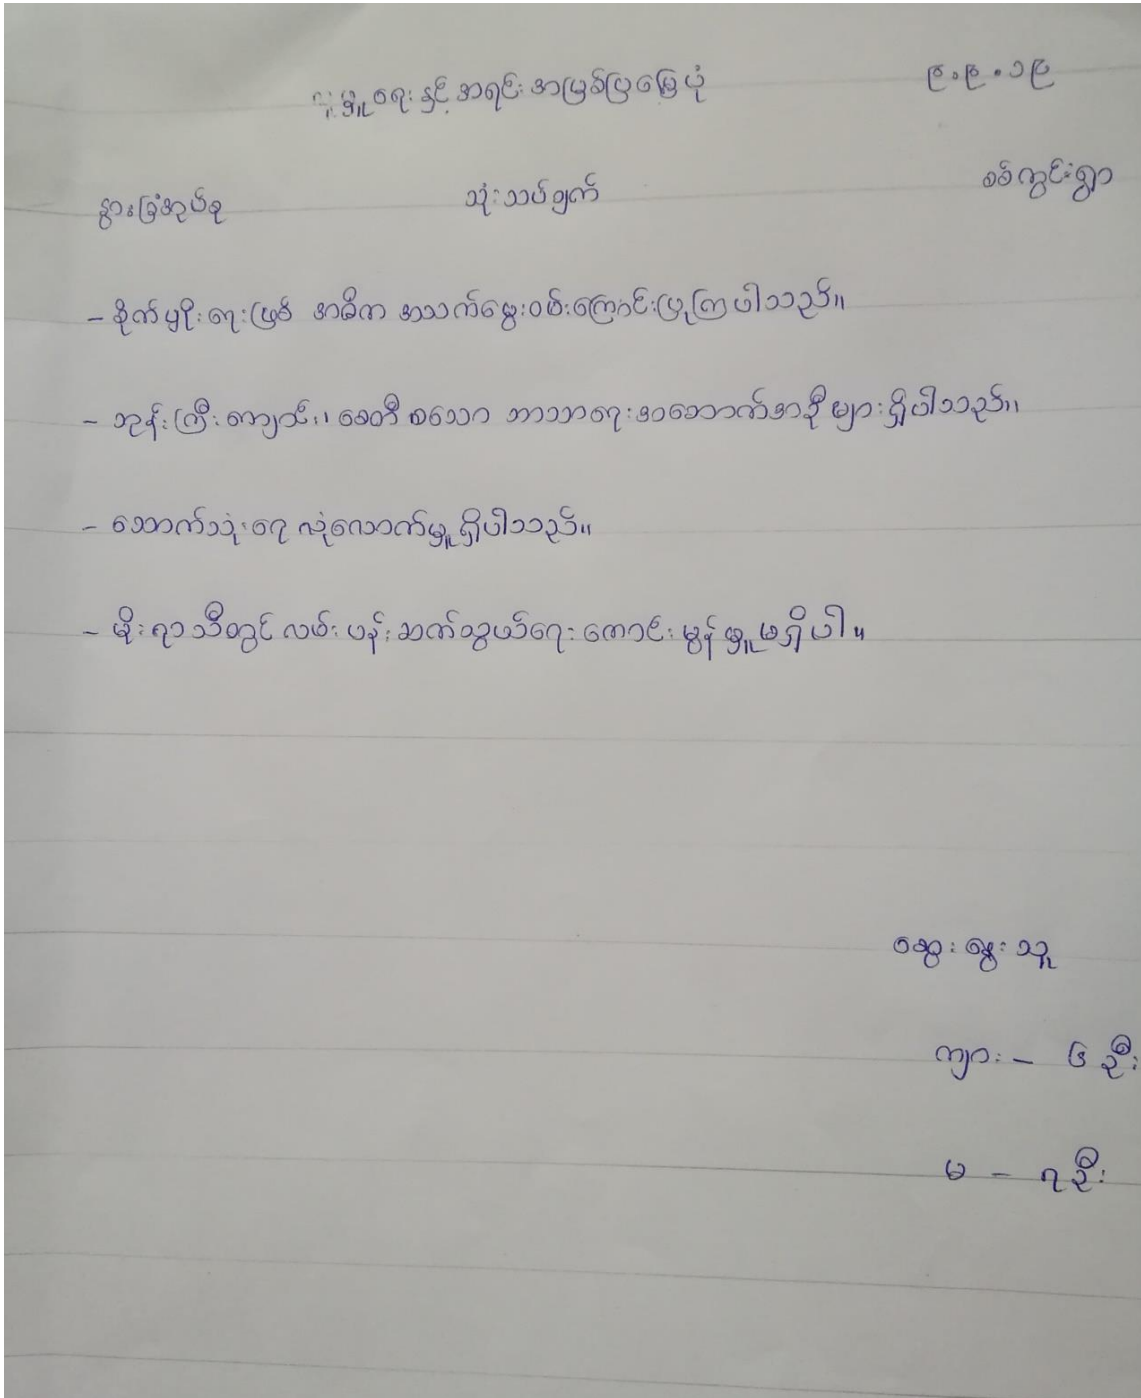 လူမှုရေးနှင့် အရင်းအမြစ်ပြမြေပုံ
၉.၉.၁၉
နွားခြံအုပ်စု
သုံးသပ်ချက်
စစ်ကွင်းရွာ
- စိုက်ပျိုးရေးဖြစ် အဓိက အသက်မွေးဝမ်းကြောင်းပြုကြပါသည်။
- ဘုန်းကြီးကျောင်း၊ စေတီ စသော ဘာသာရေးအဆောက်အဦများရှိပါသည်။
- သောက်သုံးရေ လုံလောက်မှုရှိပါသည်။
- မိုးရာသီတွင် လမ်းပန်းဆက်သွယ်ရေး ကောင်းမွန်မှုမရှိပါ။
ဆွေးနွေးသူ
ကျား - ၆ ဦး
မ - ၇ဦး